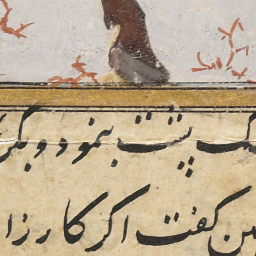 پشت بنمود و بگر
گفت اگر کارزا